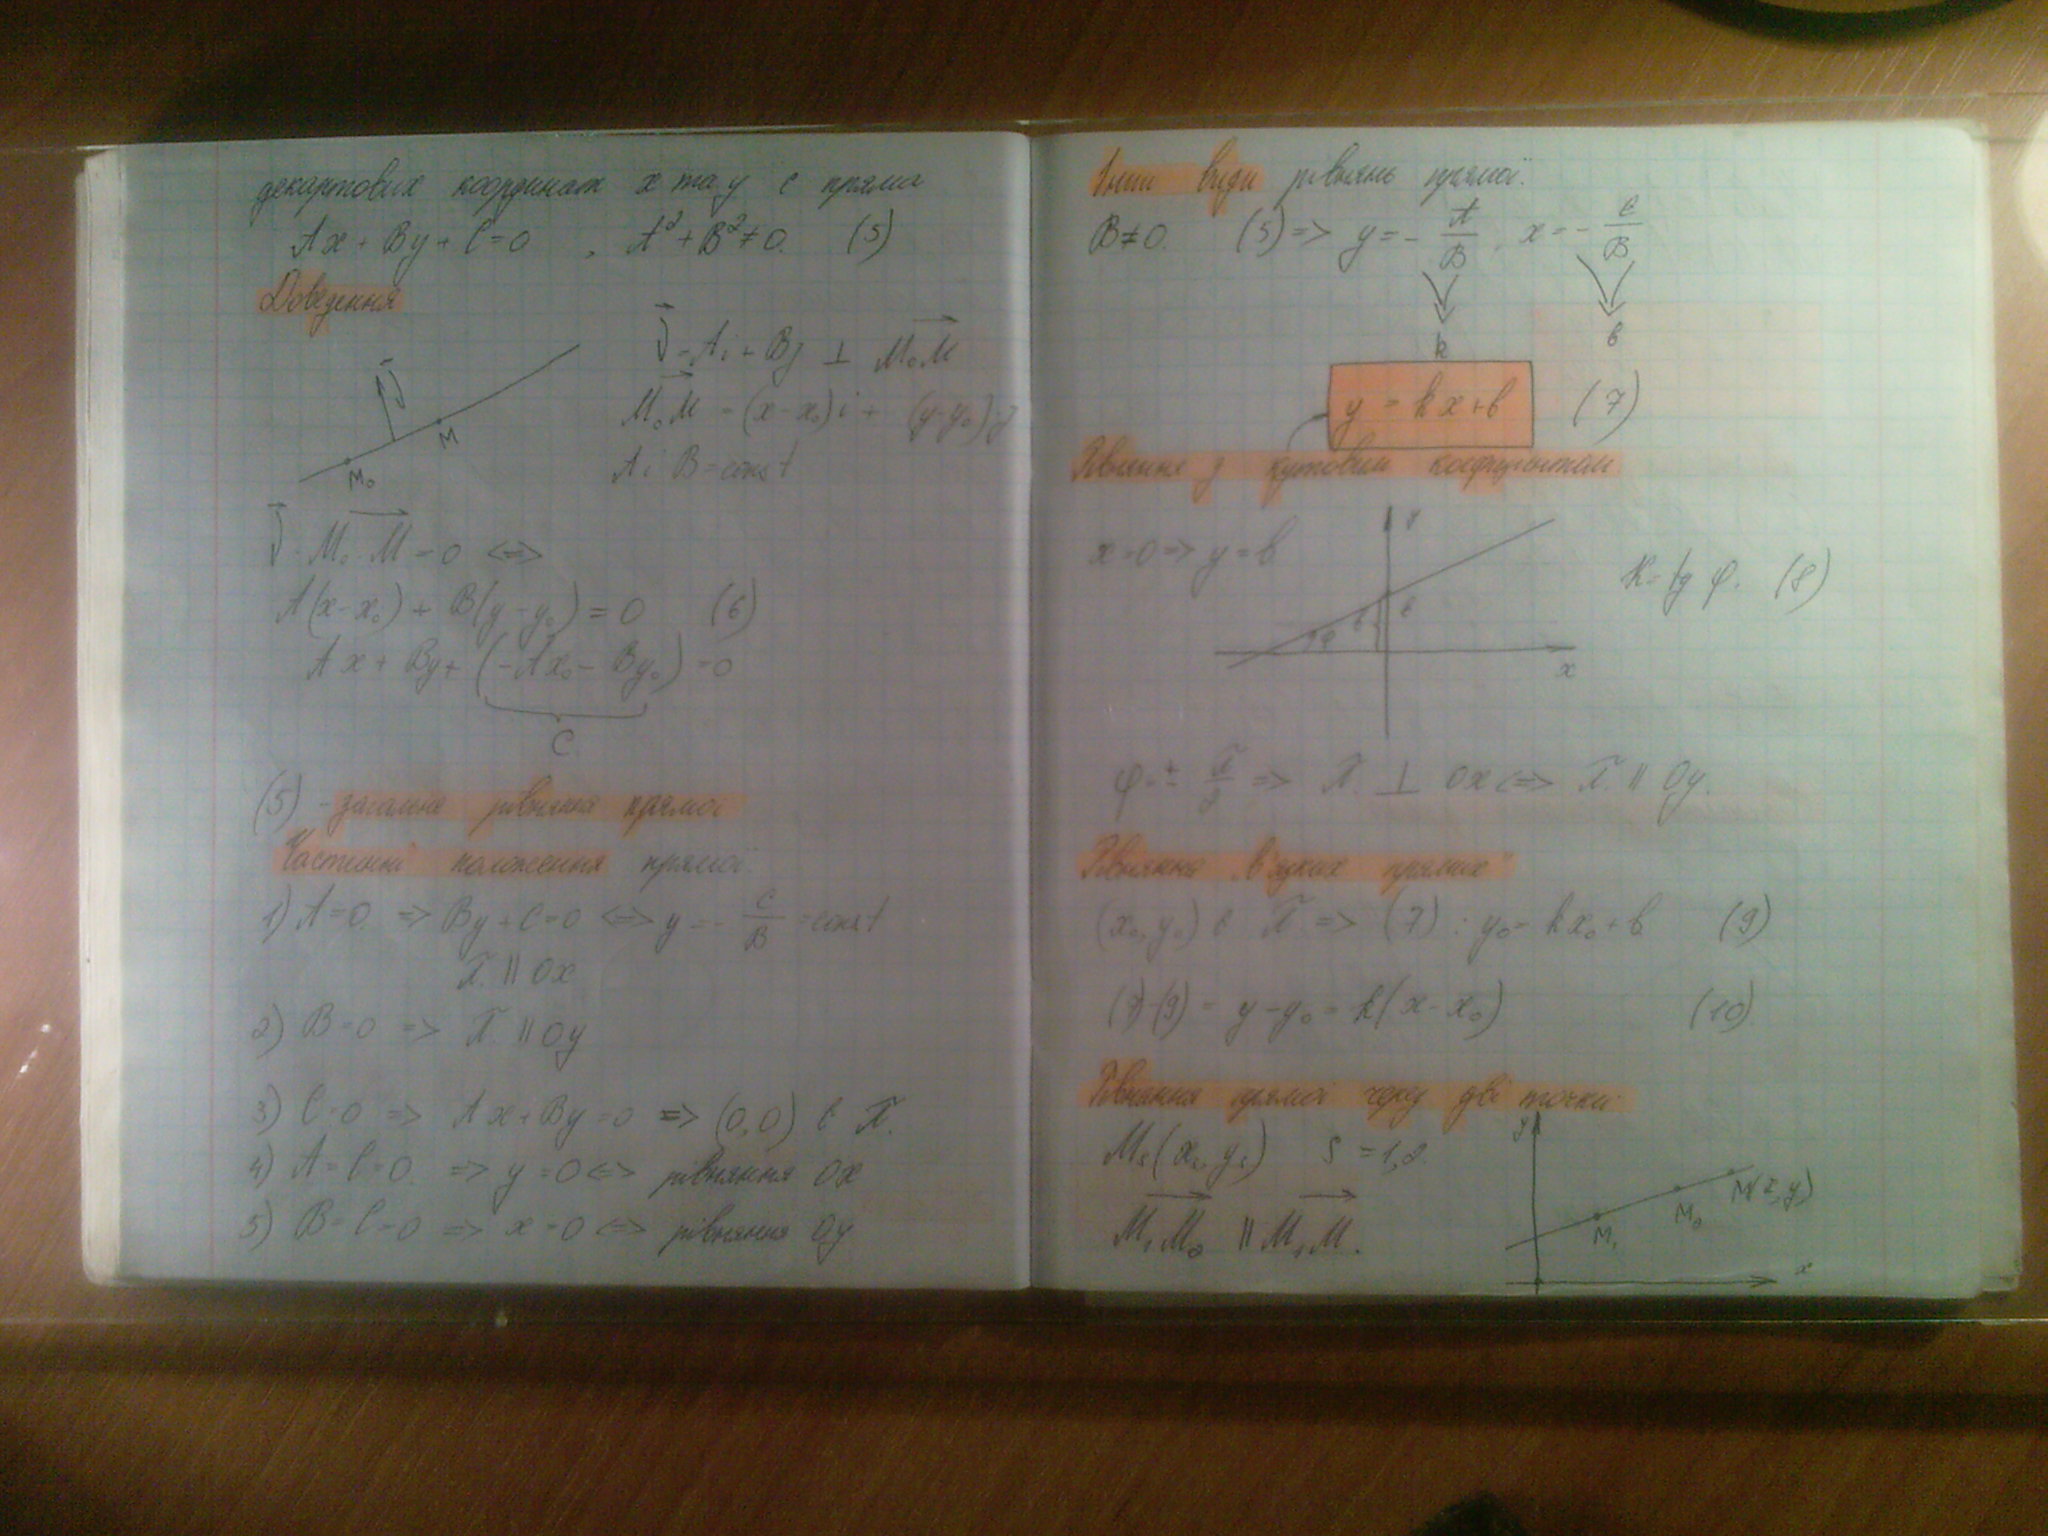 декартових координат x та y є пряма
Ax + By + C = 0 , A² + B² ≠ 0. (5)
Доведення
M₀ M
= Ai + Bj ⊥ M₀M
M₀M = (x - x₀)i + (y - y₀)j
A i B = const
· M₀M = 0 <=>
A(x - x₀) + B(y - y₀) = 0 (6)
Ax + By + (-Ax₀ - By₀) = 0
C
(5) - загальне рівняння прямої
Частинні положення прямої
1) A = 0. => By + C = 0 <=> y = - C/B = const
П. || Ox
2) B = 0 => П. || Oy
3) C = 0 => Ax + By = 0 => (0,0) є П.
4) A = C = 0. => y = 0 <=> рівняння Ox
5) B = C = 0 => x = 0 <=> рівняння Oy
Інші види рівнянь прямої.
B ≠ 0. (5) => y = - A/B . x = - C/B
k b
y = kx + b (7)
Рівняння з кутовим коефіцієнтом
x = 0 => y = b
y
φ b b
x
k = tg φ. (8)
φ = ± π/2 => П. ⊥ Ox <=> П. || Oy.
Рівняння прямих"
(x₀, y₀) є П => (7) : y₀ = kx₀ + b (9)
(7)-(9) = y - y₀ = k(x - x₀) (10)
Рівняння прямої через дві точки
Mₛ(xₛ, yₛ) s = 1,2.
M₁M₂ || M₁M.
y
M₁ M₂ M(x, y)
x